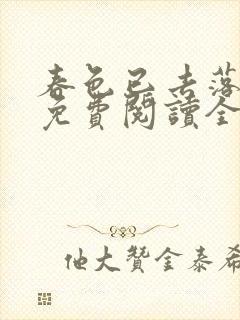 春色已去落
免費閱讀全
他大贊金泰希